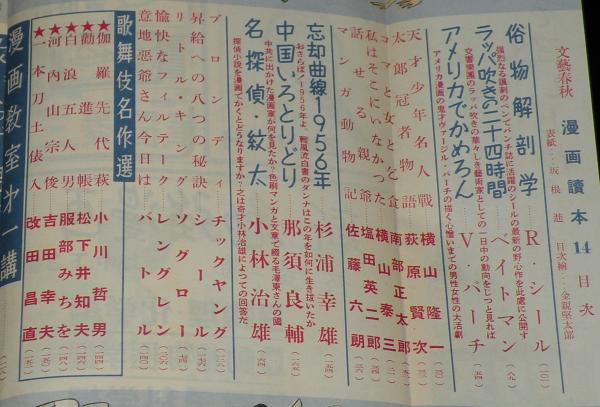 文藝春秋
漫画讀本 14 目次
表紙…坂根進 目次繪…金親堅太郎
俗物解剖学 R・シール
強烈なる諷刺のペンでパンチ誌に活躍のシールの最新の野心作を此處に公開す
ラッパ吹きの二十四時間 ベイトマン
交響樂團のラッパ吹きの華々しき藝術家としての一日中の動向をじつと見れば
アメリカでかめろん V・パーチ
アメリカ漫画の鬼才ヴァージル・パーチの描く心憎いまでの男性女性の大活劇
天才少年名人戰 横山隆一
太郎冠者物語 荻原賢次
コマと女とを食 南部正太郎
私はそこにいなかった 横山泰三
話せる親爺 塩田英二郎
マンガ動物記 佐藤六朗
忘却曲線1956年 杉浦幸雄
おさらば!1956年よ、戰風流白書のダンナはこの年を如何に生き抜いたか
中国いろとりどり 那須良輔
中共に出かけた漫画家が何を見たか?色刷マンガと文章で綴る毛澤東さんの國
名探偵・紋太 小林治雄
探偵小説を漫画でかくとどうなりますか?之は奇才小林治雄によつての回答だ
ブロンディ チックヤング
昇給への八つの秘訣 シュールマン
リトルキング ソグロー
愉快なフィルテーク レングレン
意地惡爺さん今日は バトー
歌舞伎名作選
★伽羅先代萩 小川哲男
★勸進帳 松下井知夫
★白浪五人男 服部みちを
★河内山宗俊 吉田幸夫
★一本刀土俵入 改田昌直
漫画教室才一講